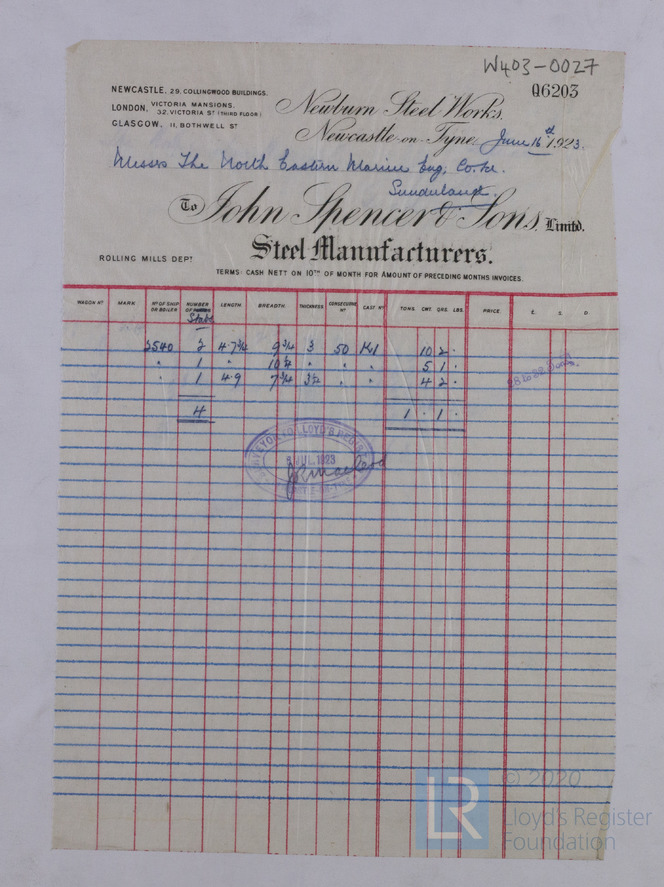 W403-0027
Q6203
NEWCASTLE, 29, COLLINGWOOD BUILDINGS.
LONDON, VICTORIA MANSIONS, 32, VICTORIA ST (THIRD FLOOR)
GLASGOW, 11, BOTHWELL ST
Newburn Steel Works,
Newcastle-on-Tyne, June 16th 1923.
Messrs The North Eastern Marine Eng. Co. Ld.
Sunderland.
To John Spencer & Sons, Limited.
Steel Manufacturers.
ROLLING MILLS DEPT
TERMS: CASH NETT ON 10TH OF MONTH FOR AMOUNT OF PRECEDING MONTHS INVOICES.
WAGON No MARK No OF SHIP OR BOILER NUMBER OF LENGTH. BREADTH. THICKNESS CONSECUTIVE No CAST No TONS. CWT. QRS. LBS. PRICE. £. S. D
Slabs
2540 2 4.7¾ 9¾ 3 50 10 2 .
" 1 " 10¼ " " " 5 1 .
" 1 4.9 7¾ " " 4 2 .
4 1 . 1 .
LLOYD'S
JUL 1923
© 2020
LR Lloyd's Register
Foundation